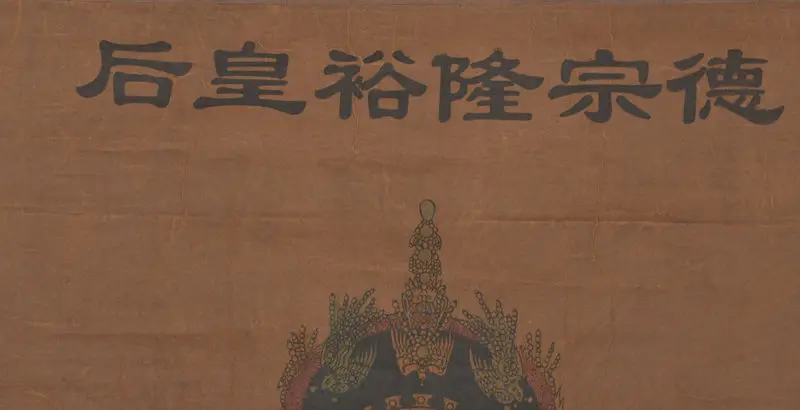 德宗隆裕皇后